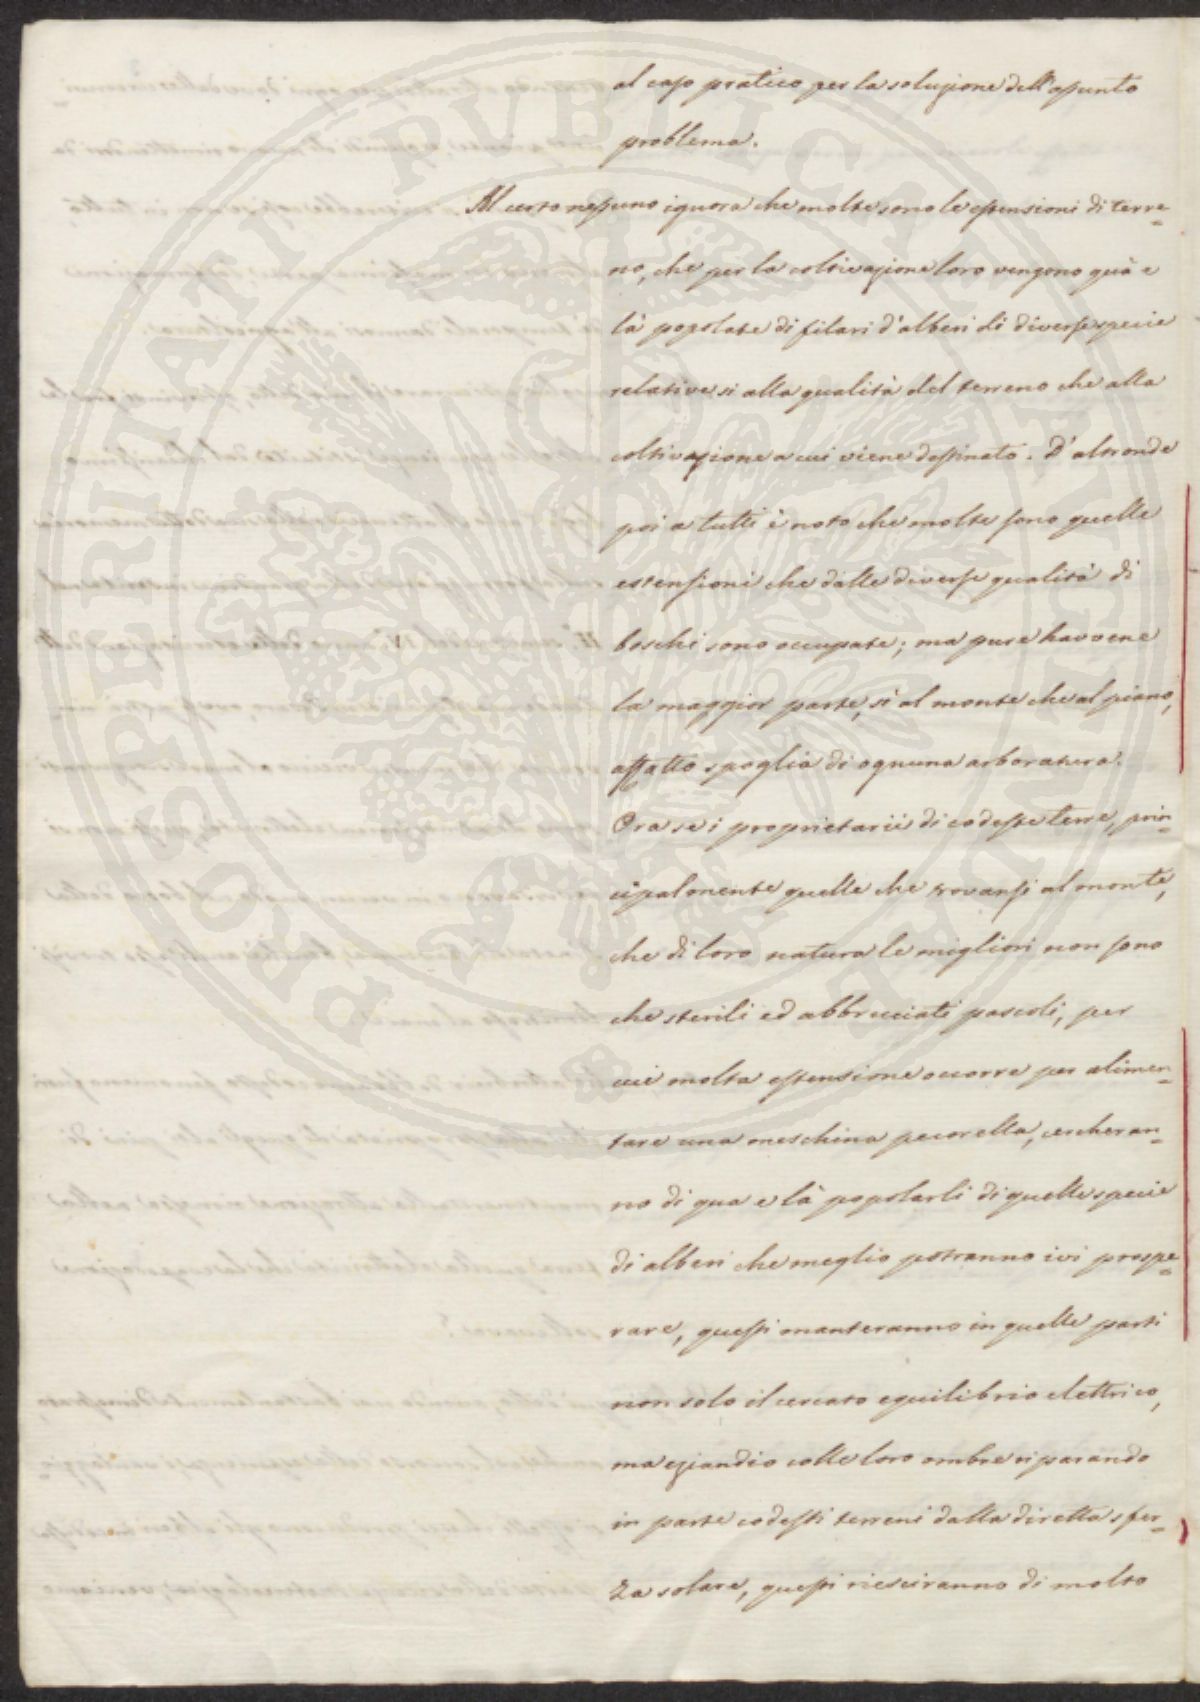 al caso pratico per la soluzione dell'assunto
problema.
Al certo nessuno ignora che molte sono le estensioni di terre=
no, che per la coltivazione loro vengono quà e
là popolate di filari d'alberi di diverse specie
relative si alla qualità del terreno che alla
coltivazione a cui viene destinato. D'altronde
poi a tutti è noto che molte sono quelle
estensioni che dalle diverse qualità di
boschi sono occupate; ma pure havvene
la maggior parte, sì al monte che al piano,
affatto spoglia di ognuna arboratura.
Ora se i proprietarii di codeste terre, prin=
cipalmente quelle che trovansi al monte,
che di loro natura le migliori non sono
che sterili ed abbrucciati pascoli, per
cui molta estensione occorre per alimen=
tare una meschina pecorella, cercheran=
no di qua e là popolarli di quelle specie
di alberi che meglio potranno ivi prospe=
rare, questi manteranno in quelle parti
non solo il cercato equilibrio elettrico,
ma eziandio colle loro ombre riparando
in parte codesti terreni dalla diretta sfer=
za solare, questi riesciranno di molto
PROSPERITATI PUBLICAE AUGENDAE